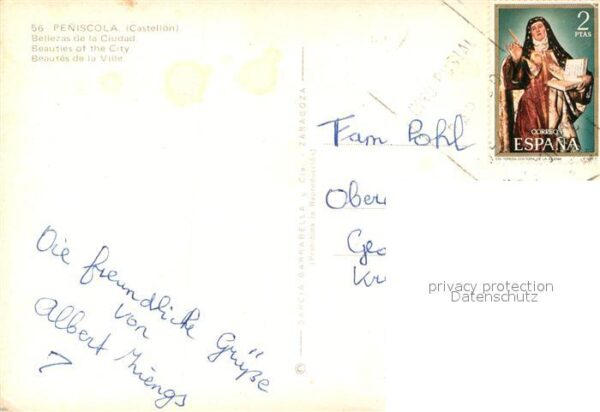 56 - PEÑISCOLA. (Castellón)
Bellezas de la Ciudad
Beauties of the City
Beautés de la Ville
2
PTAS
CORREOS
ESPAÑA
GARCIA GARRABELLA y Cía. - ZARAGOZA
(Prohibida la Reproducción)
©
Fam. Pohl
Ober
Geo
Kr
privacy protection
Datenschutz
Die freundliche Grüße
von
Albert